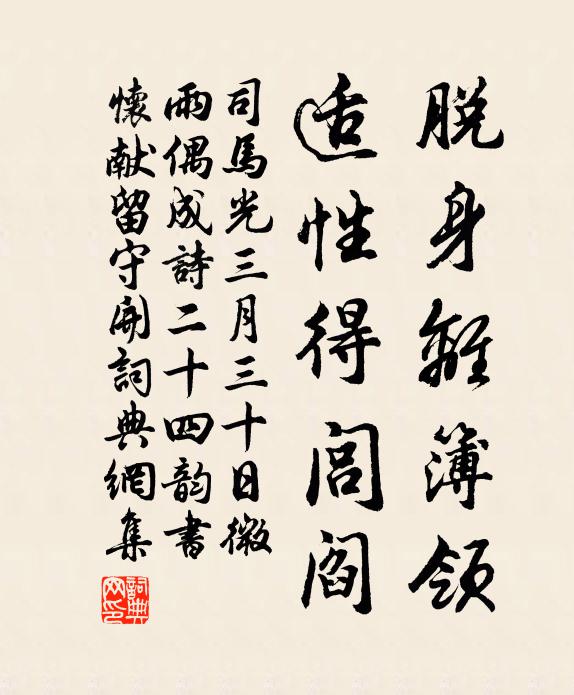 脱身離簿領
适性得閭閻
司馬光三月三十日微
雨偶成詩二十四韵書
懷献留守開詞典網集
詞典網印